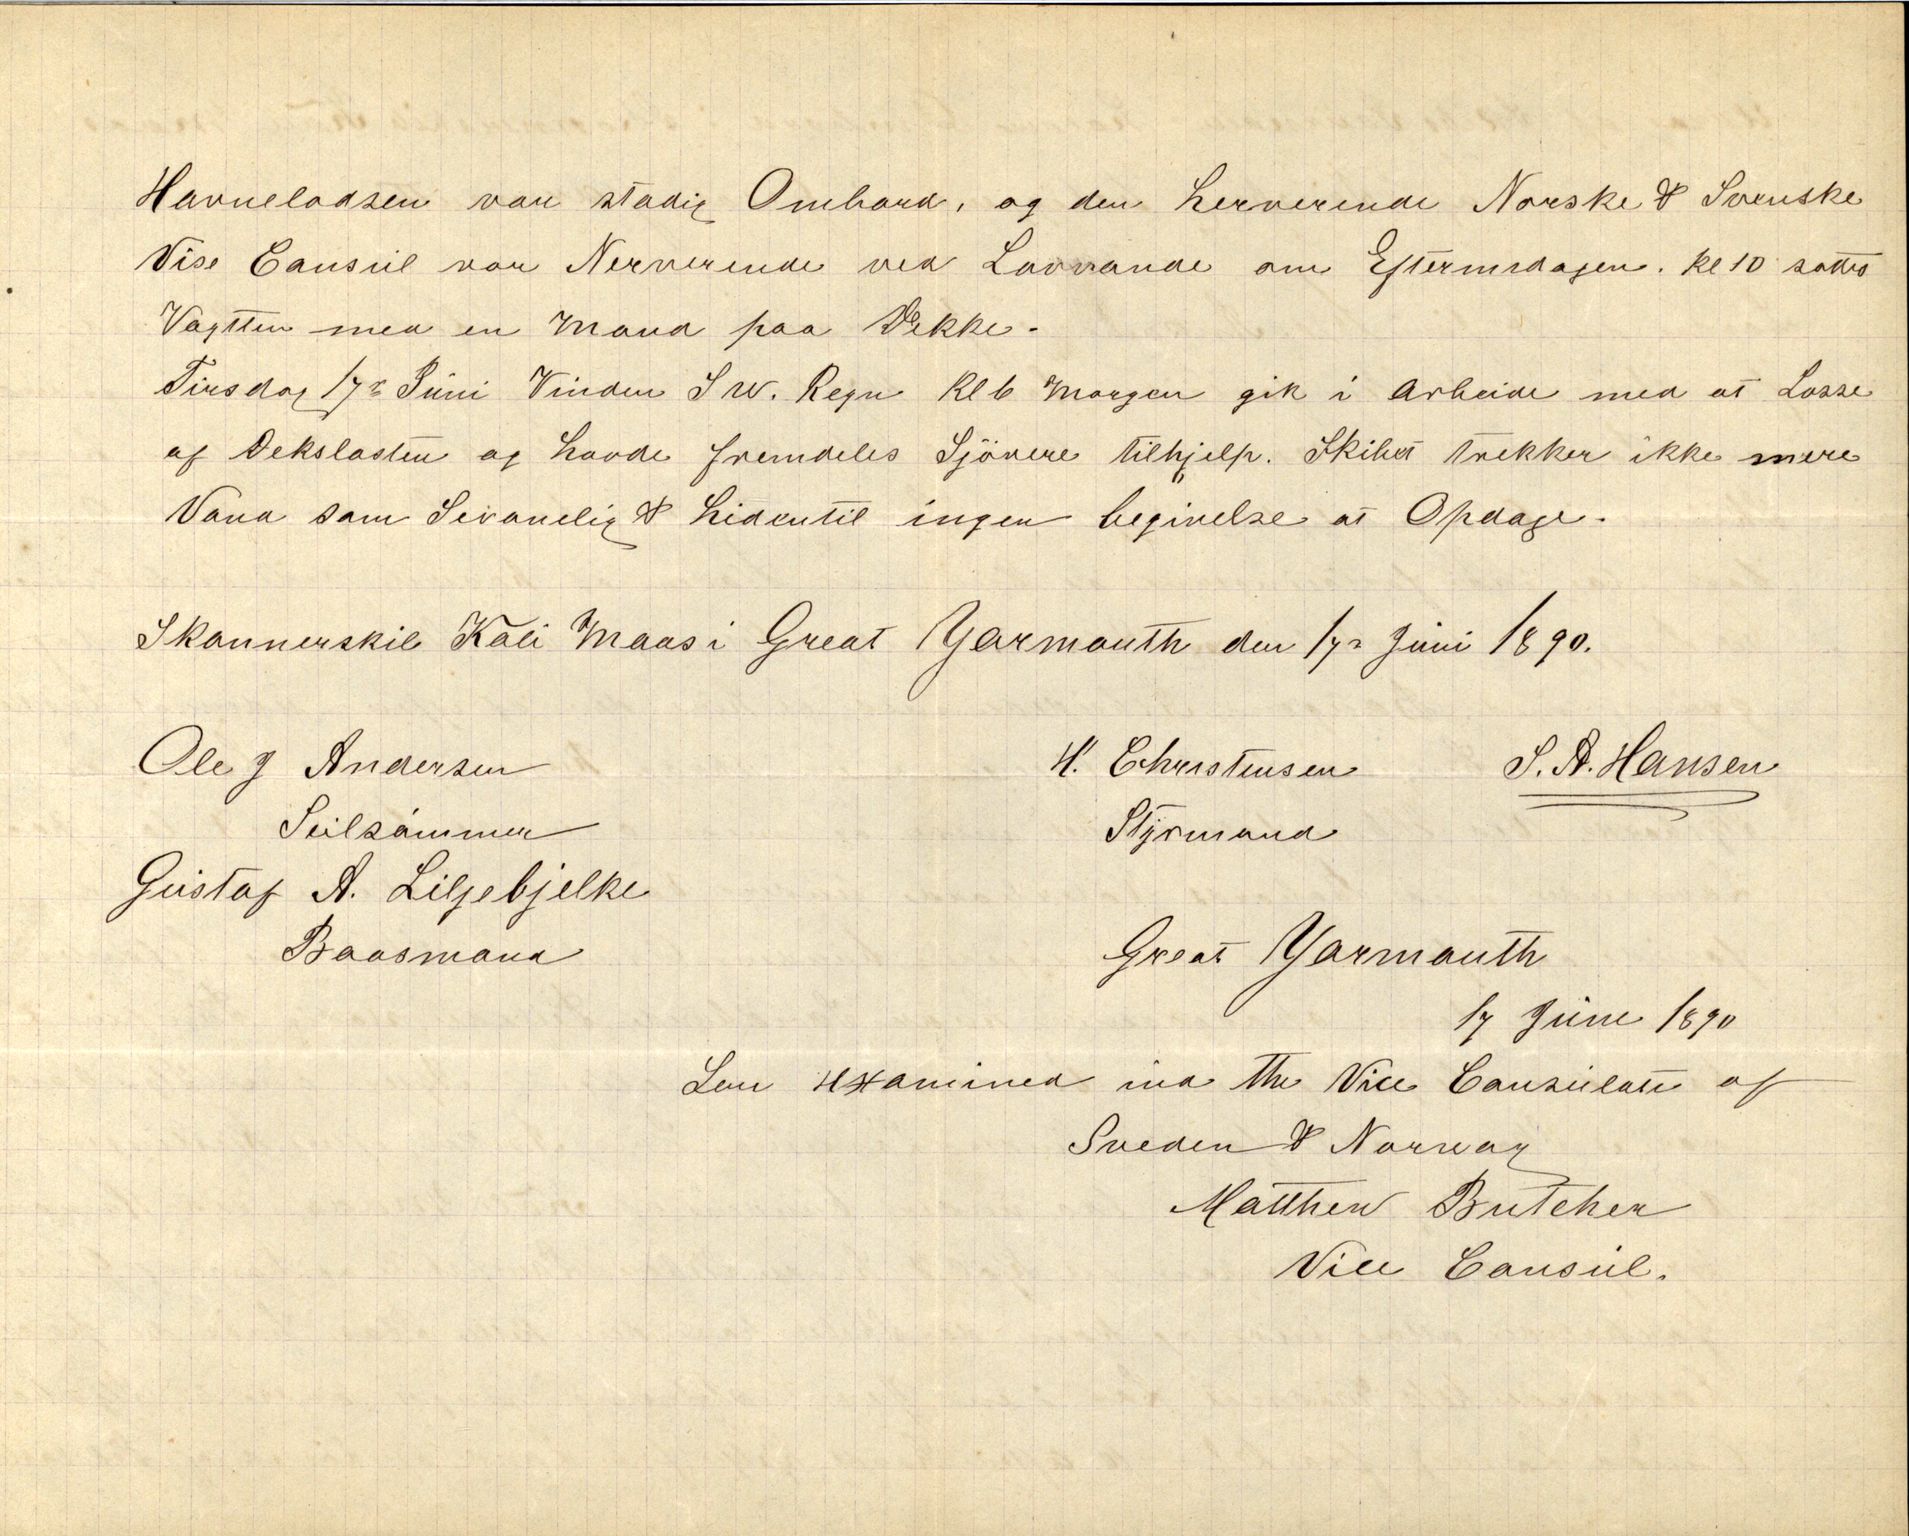 Havnelodsen var stadig Ombord, og den herverende Norske & Svenske
Vise Consul var Nerverende ved Lavvande om Eftermidagen. Kl 10 sattes
Vagtten med en Mand paa Dekke.
Tirsdag 17de Juni Vinden S W. Regn Kl 6 Morgen gik i Arbeide med at Losse
af Dekslasten og havde fremdeles Sjövere tilhjelp. Skibet trekker ikke mere
Vand som Sevanelig & hidentil ingen begivelse at Opdage.
Skonnerskib Kali Maas i Great Yarmouth den 17de Juni 1890.
Ole J Andersen H. Christensen S. A. Hansen
Seilsømmer Styrmand
Gustaf A. Liljebjelke
Baasmand
Great Yarmouth
17 June 1890
examined ind the Vice Consulate of
Sveden & Norway
Matthew Butcher
Vice Consul.